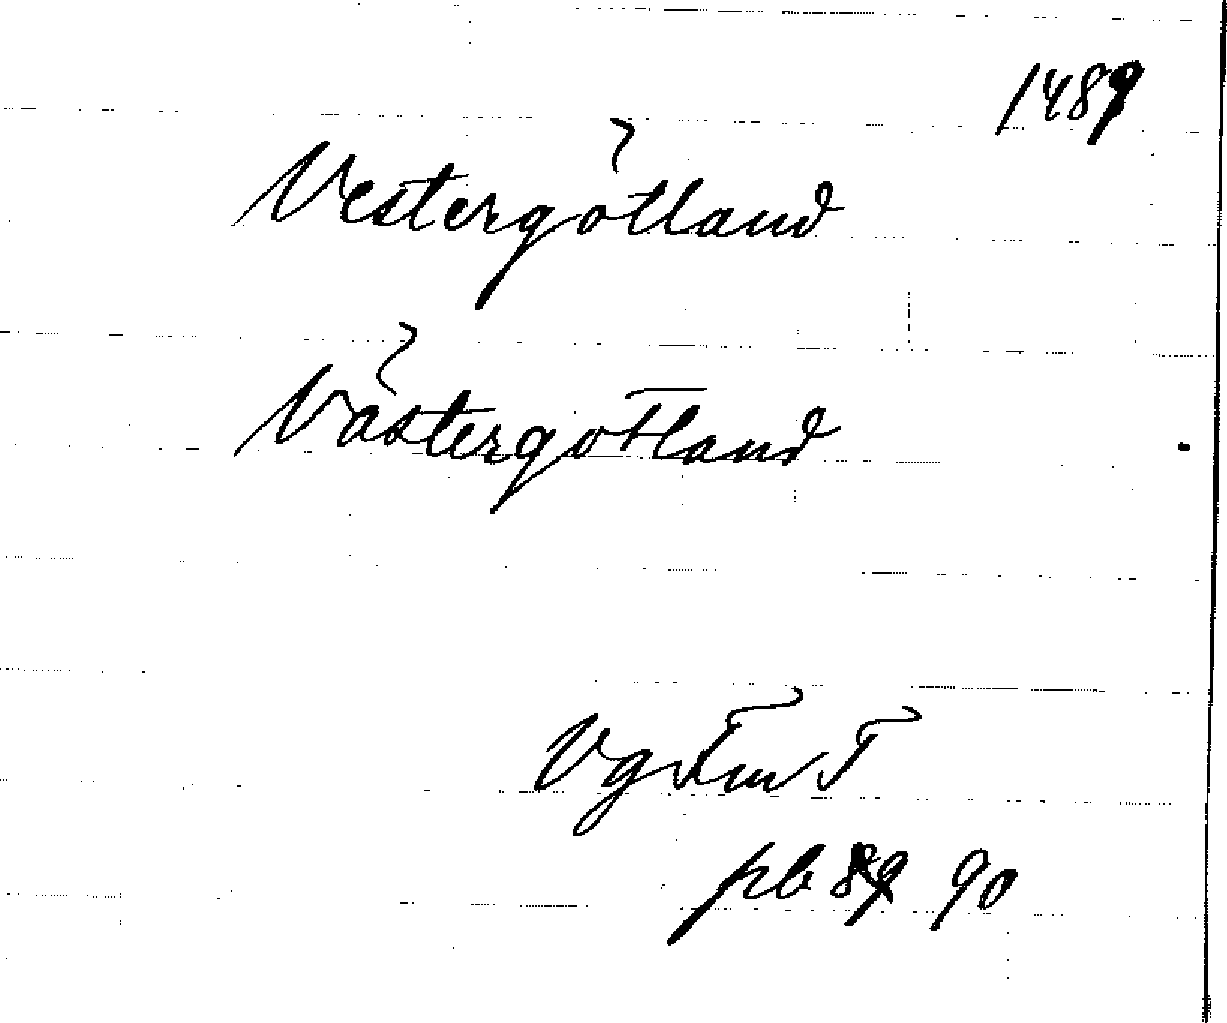 1489
Vestergötland
Västergötland
Vg Fm T
pb 89 90